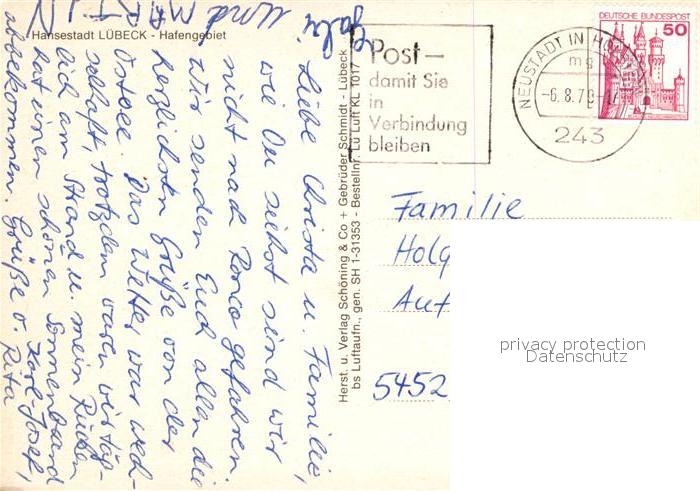 Hansestadt LÜBECK - Hafengebiet
Liebe Christa u. Familie,
wie Du siehst sind wir
nicht nach Ronco gefahren.
Wir senden Euch allen die
herzlichsten Grüße von der
Ostsee. Das Wetter war wech-
selhaft, trotzdem waren wir täg-
lich am Strand u. mein Rücken
hat einen schönen Sonnenbrand
abbekommen. Grüße v. Karl-Josef,
Rita
und MARTIN
Herst. u. Verlag Schöning & Co + Gebrüder Schmidt - Lübeck
bs Luftaufn., gen. SH 1-31353 - Bestellnr. Lü Luft KL 1017
Post –
damit Sie
in
Verbindung
bleiben
NEUSTADT IN HO
mg
-6.8.79
243
DEUTSCHE BUNDESPOST
50
Familie
Holg
Auf
5452
privacy protection
Datenschutz